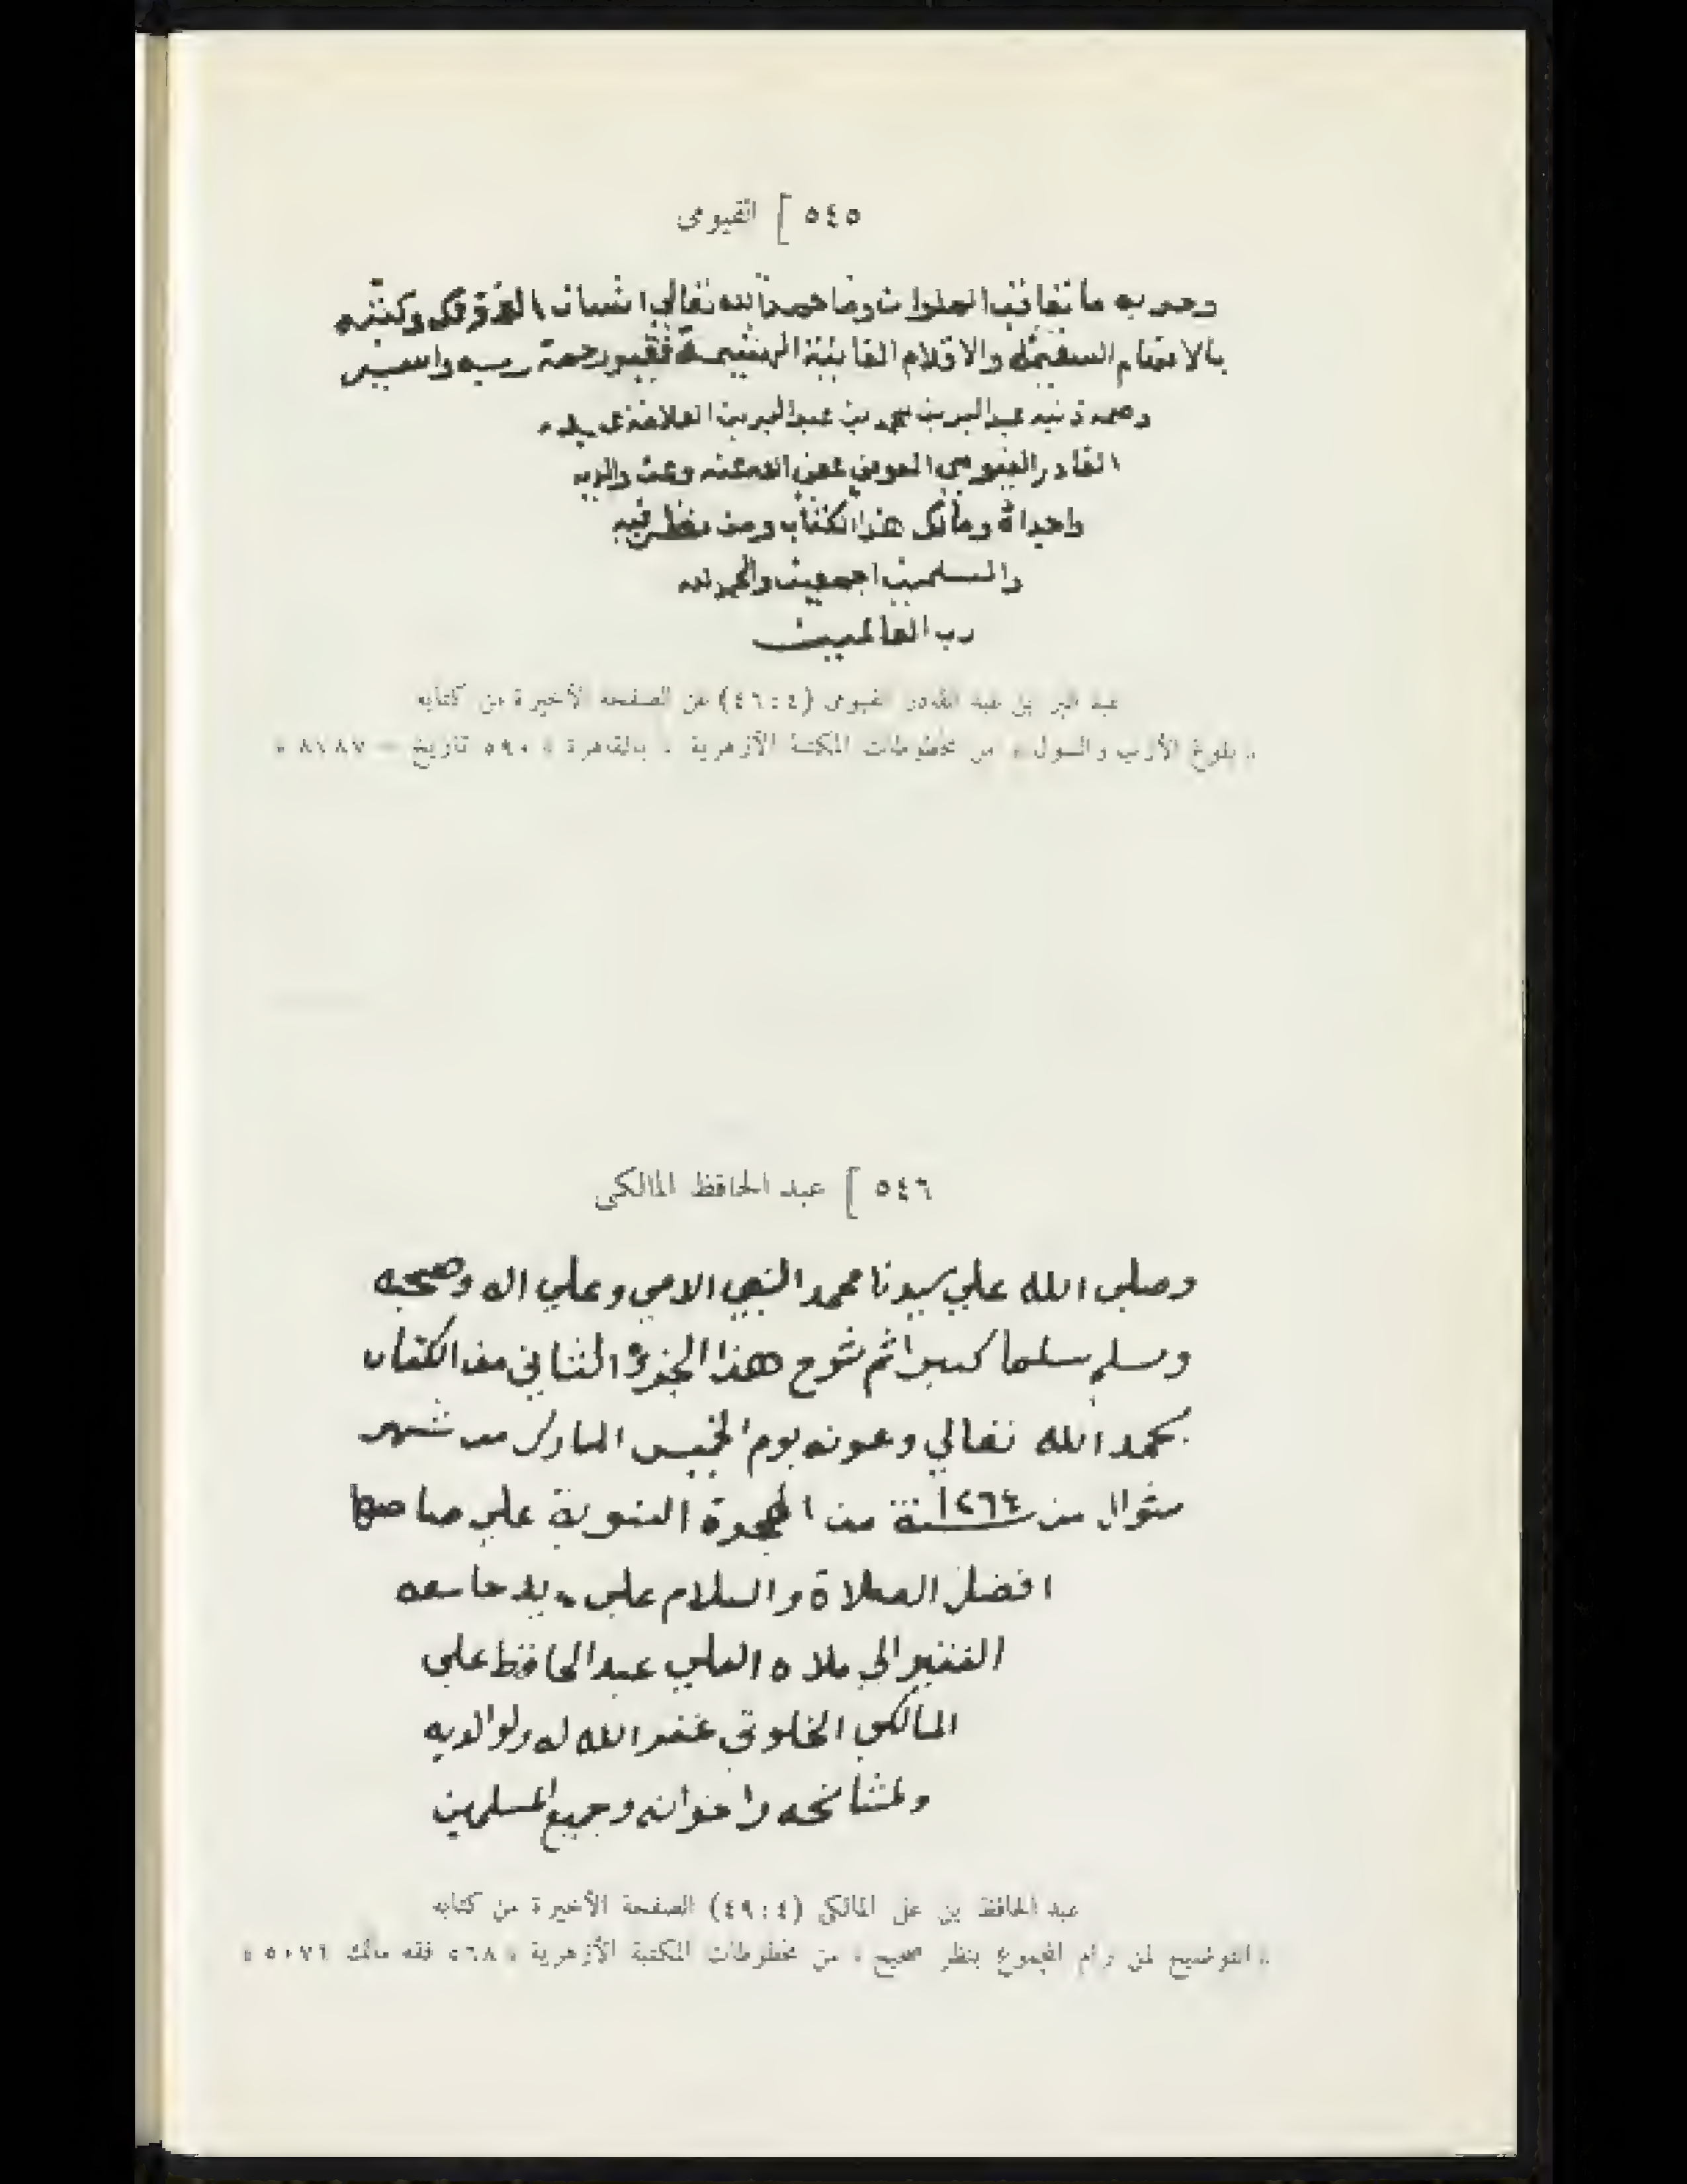 ٥٤٥ ] الفيومى
ما تعاقب الملوان وما حمد الله تعالى انسان
والاقلام رحمة ربه
عبد البر بن محمد بن عبد البر بن
القادر الفيومي العوفي عفى الله عنه وعن والديه
واحبائه ومالك هذا الكتاب ومن نظر فيه
والمسلمين اجمعين والحمد لله
رب العالمين
عبد البر بن عبد القادر الفيومى (٤:٤٦) عن الصفحة الأخيرة من كتابه
« بلوغ الأرب والسول » من مخطوطات المكتبة الأزهرية ، بالقاهرة « ٥٩٠ تاريخ — ٨٧٨٧ »
٥٤٦ ] عبد الحافظ المالكى
وصلى الله علي سيدنا محمد النبي الامي وعلي اله وصحبه
وسلم هذا الجزؤ الثاني من الكتاب
بحمد الله تعالي وعونه يوم الخميس المبارك من شهر
شوال من ١٢٦٤ سنة من الهجرة النبوية علي صاحبها
افضل الصلاة والسلام علي يد جامعه
الفقير الي ملاه العلي عبد الحافظ علي
المالكي الخلوتي غفر الله له ولوالديه
ولمشائخه واخوانه وجميع المسلمين
عبد الحافظ بن على المالكى (٤:٤٩) الصفحة الأخيرة من كتابه
« التوضيح لمن رام المجموع بنظر صحيح » من مخطوطات المكتبة الأزهرية « ٥٦٨ فقه مالك ٥٠٧٩ »